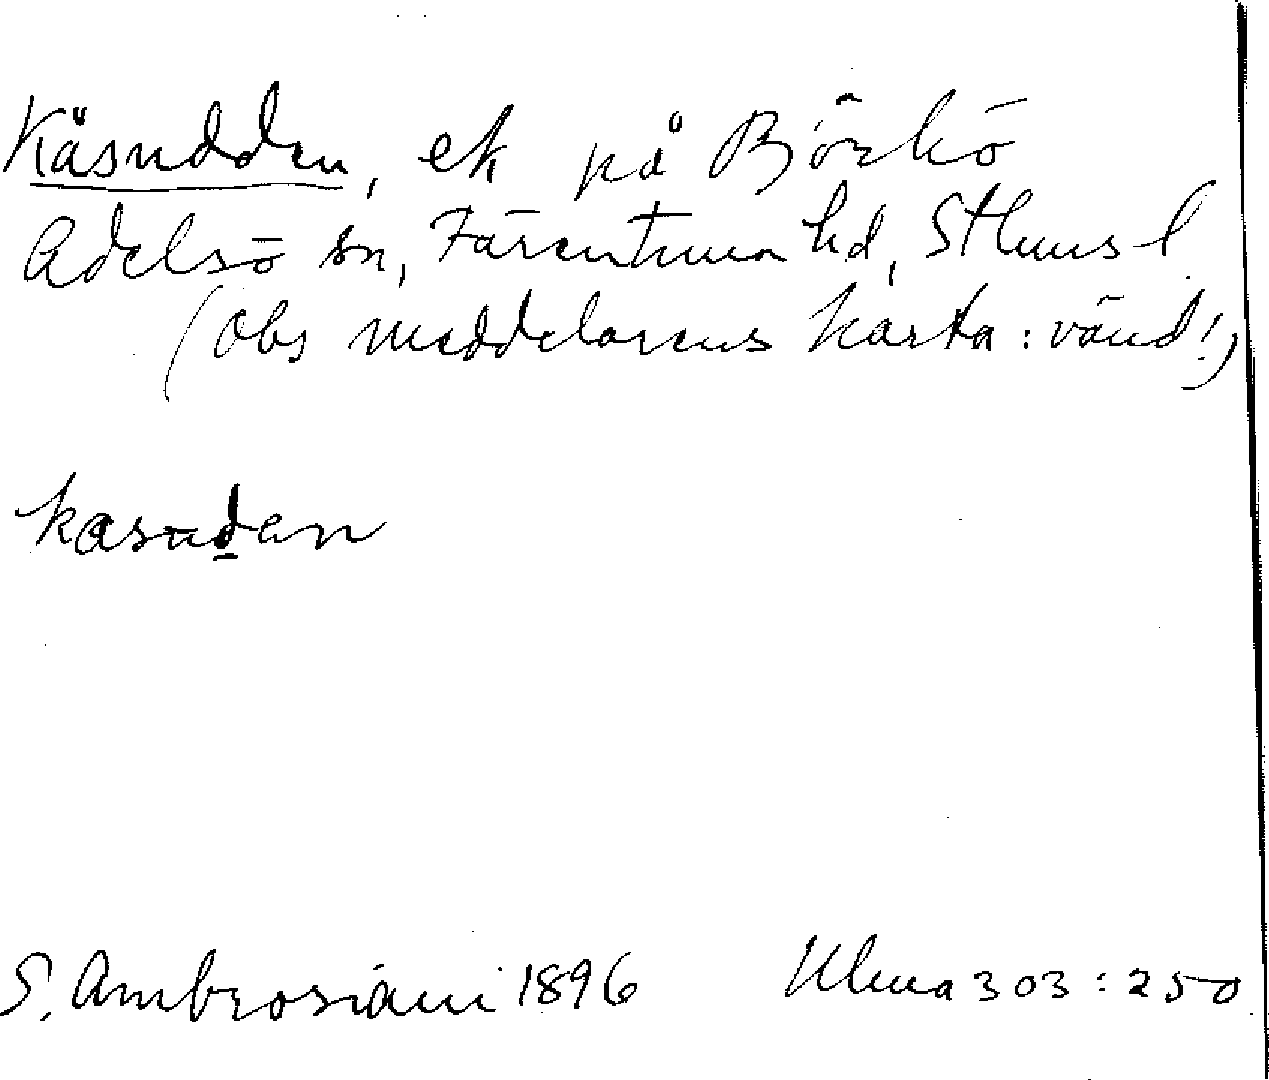 Kåsudden, ek på Björkö
Adelsö sn, Färentuna hd, Sthms l
(Obs meddelarens karta : vänd!)
kasuden
S. Ambrosiani 1896 Ulma 303 : 250